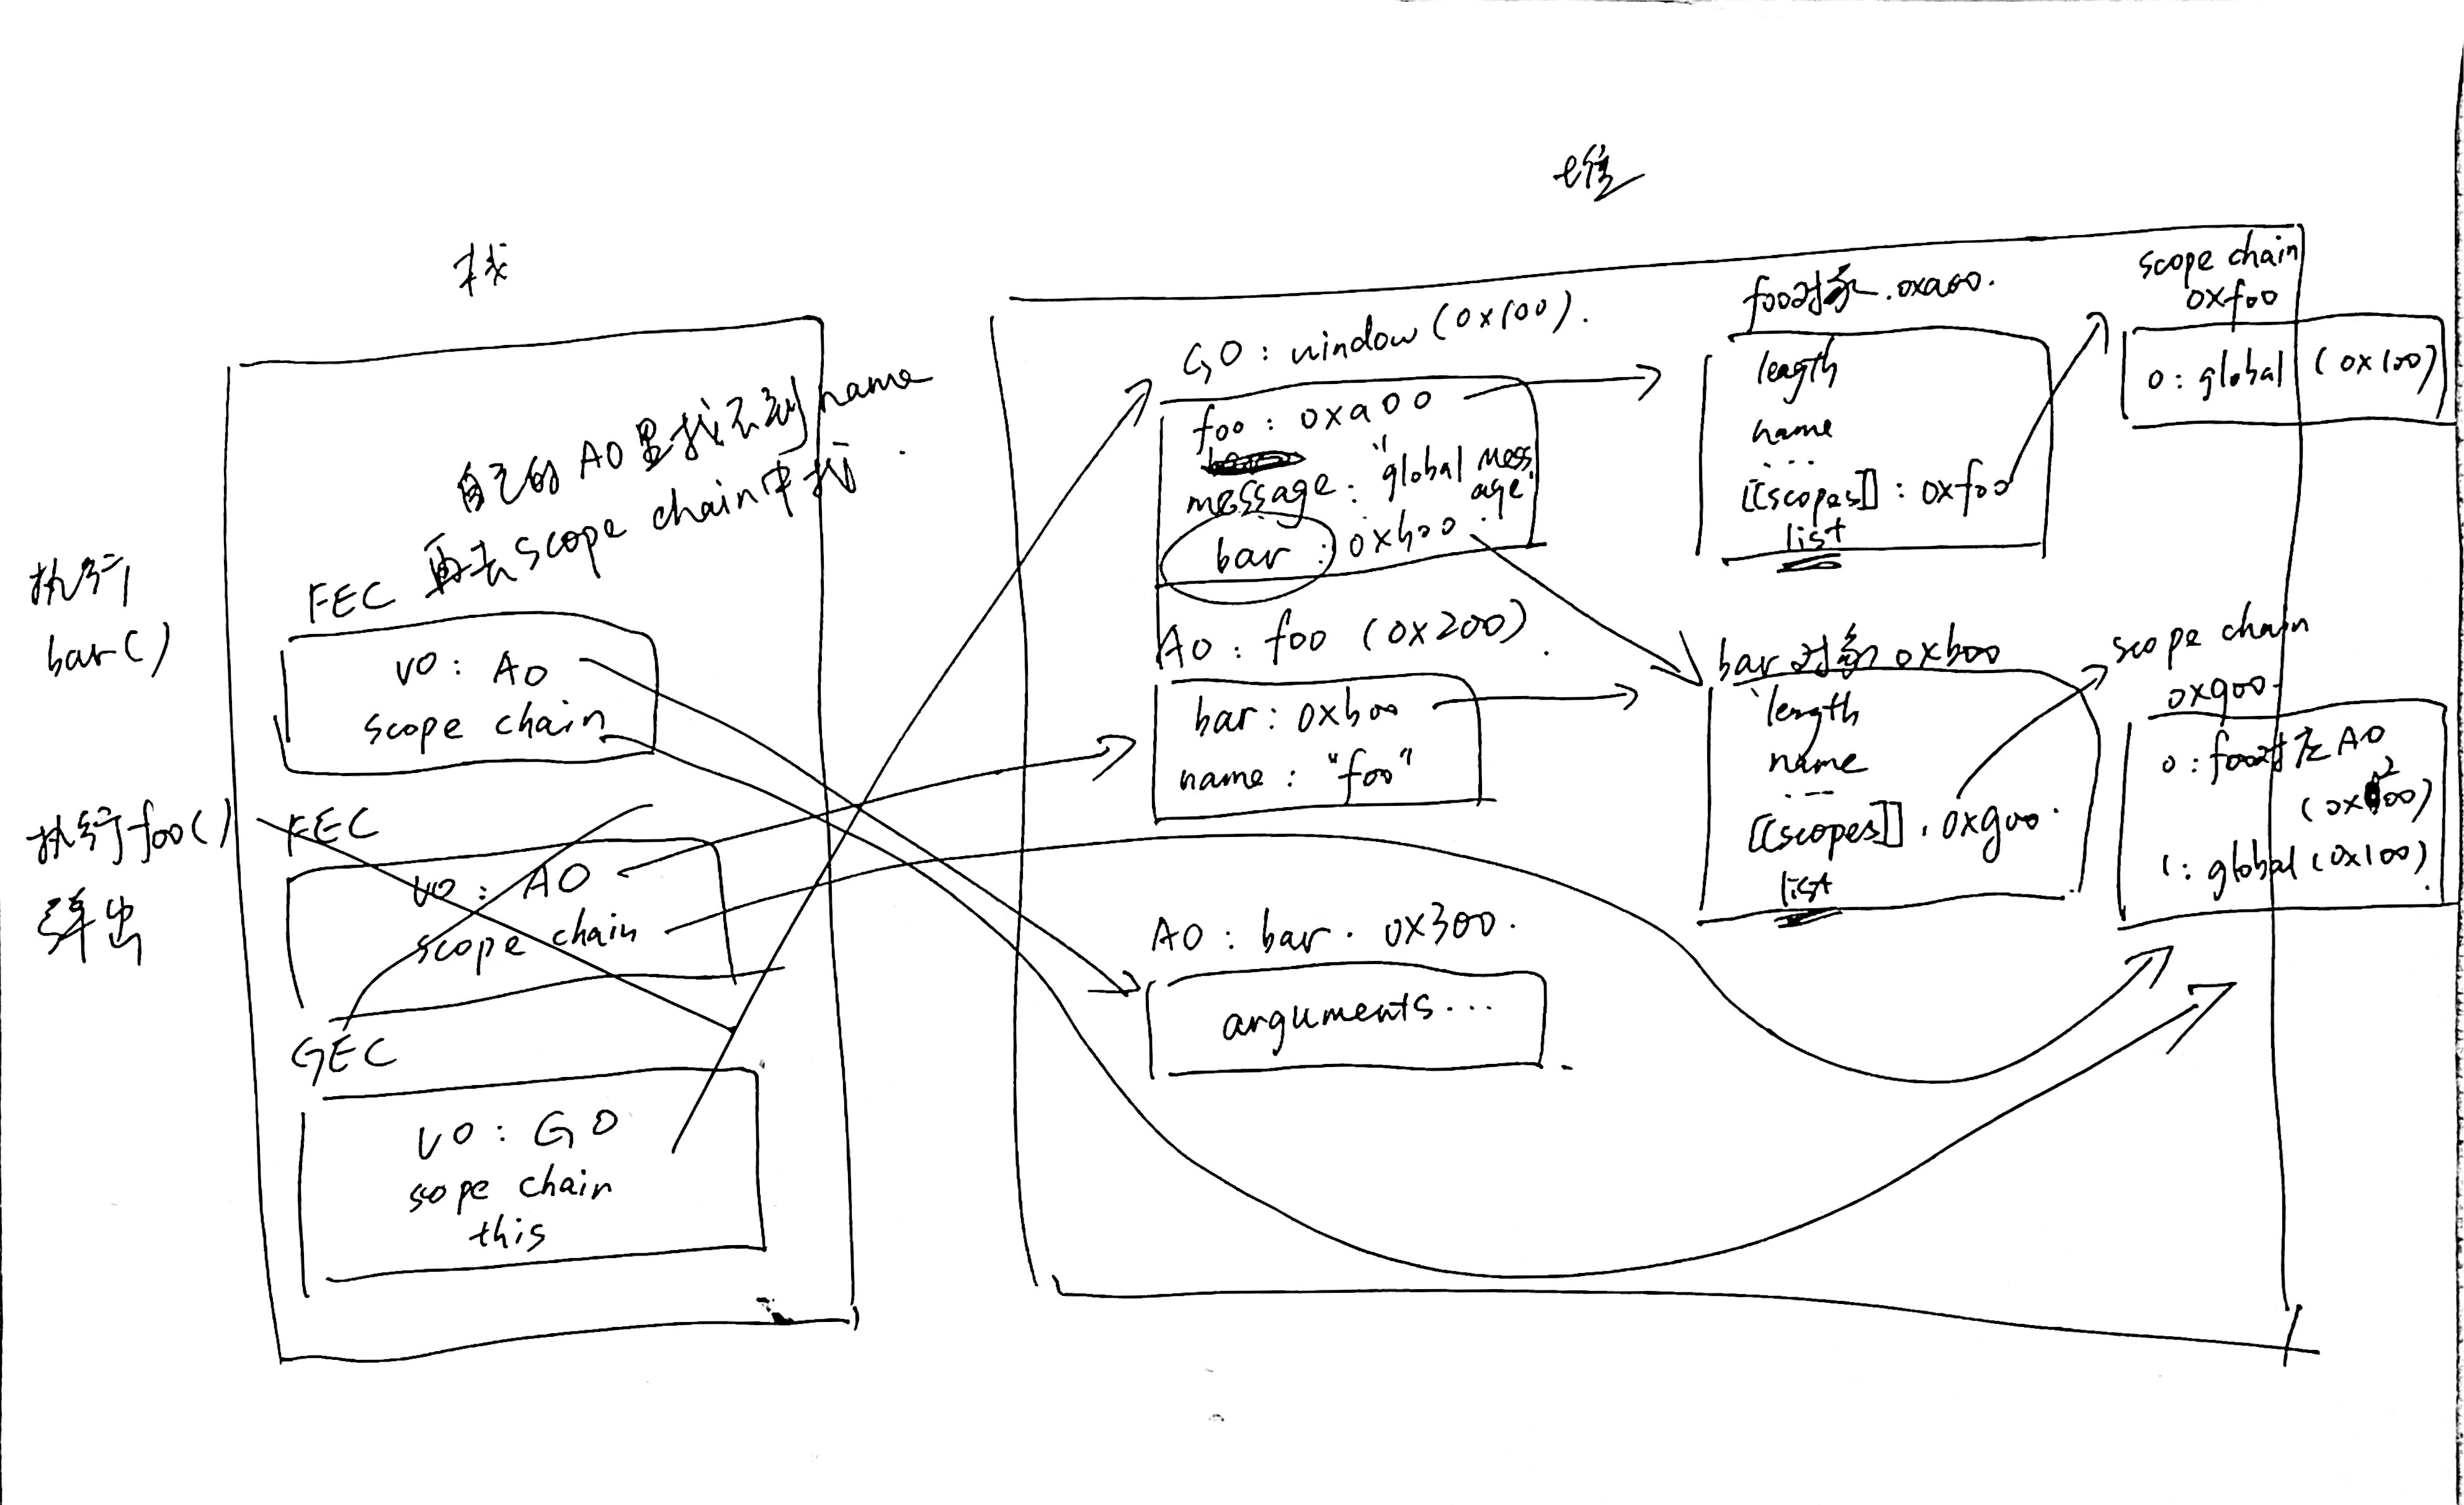 栈
自己的AO里找不到name
再去scope chain中找.
执行
bar()
FEC
VO: AO
scope chain
执行foo()
弹出
FEC
VO: AO
scope chain
GEC
VO: GO
scope chain
this
堆
GO: window (0x100).
foo: 0xa00
message: "global mess
age"
bar: 0xb00
AO: foo (0x200)
bar: 0xb00
name: "foo"
AO: bar. 0x300.
arguments...
foo对象.0xa00.
length
name
...
[[scopes]]: 0xf00
list
bar对象 0xb00
length
name
...
[[scopes]]. 0xg00.
list
scope chain
0xf00
0: global (0x100)
scope chain
0xg00.
0: foo对应AO
(0x200)
1: global (0x100)